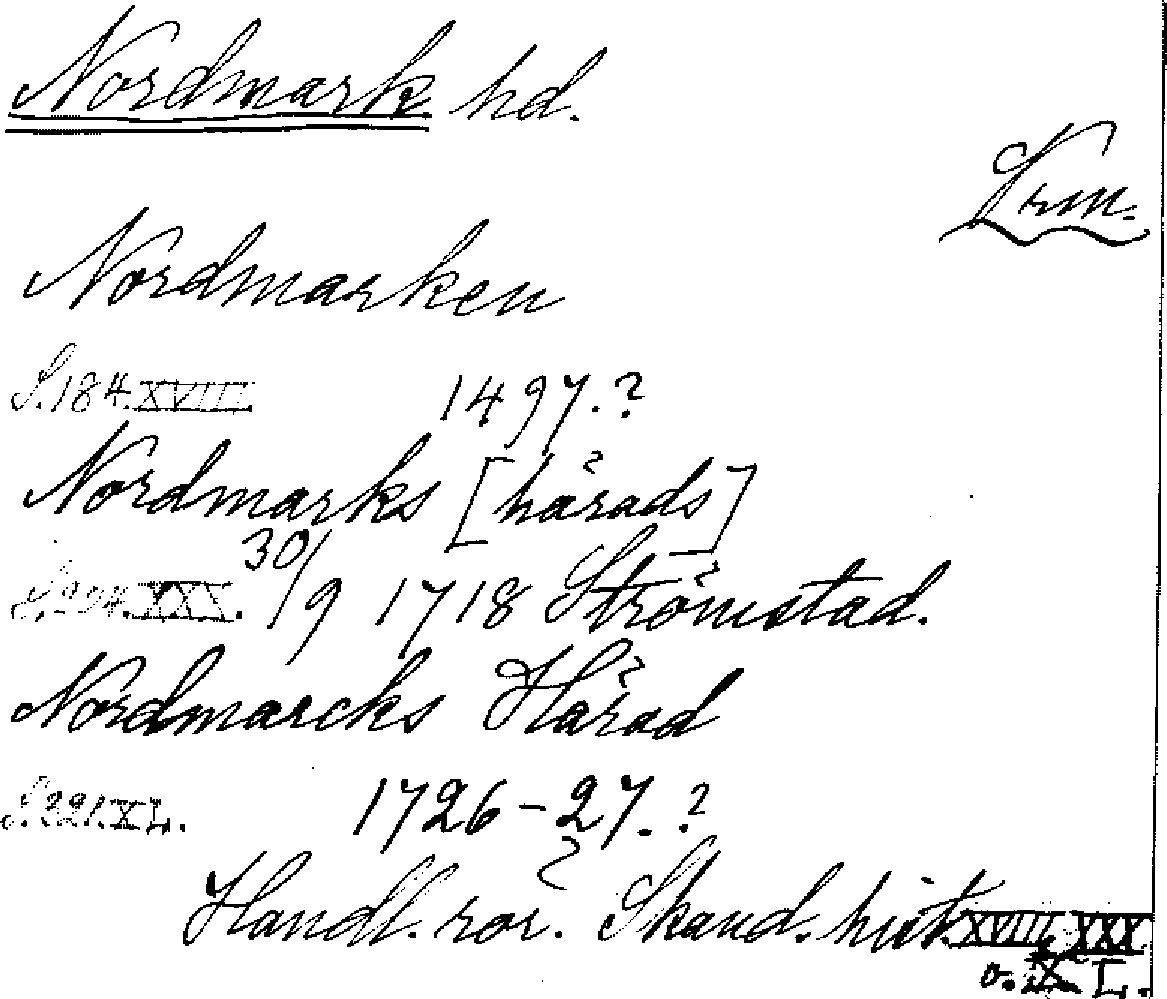 Nordmark hd.
Vrm.
Nordmarken
S. 184. XVIII. 1497.?
Nordmarks [härads]
S. 204. XXX. 30/9 1718 Strömstad.
Nordmarcks Härad
S. 221. XL. 1726-27.?
Handl. rör. Skand. hist. XVIII, XXX
o. XL.